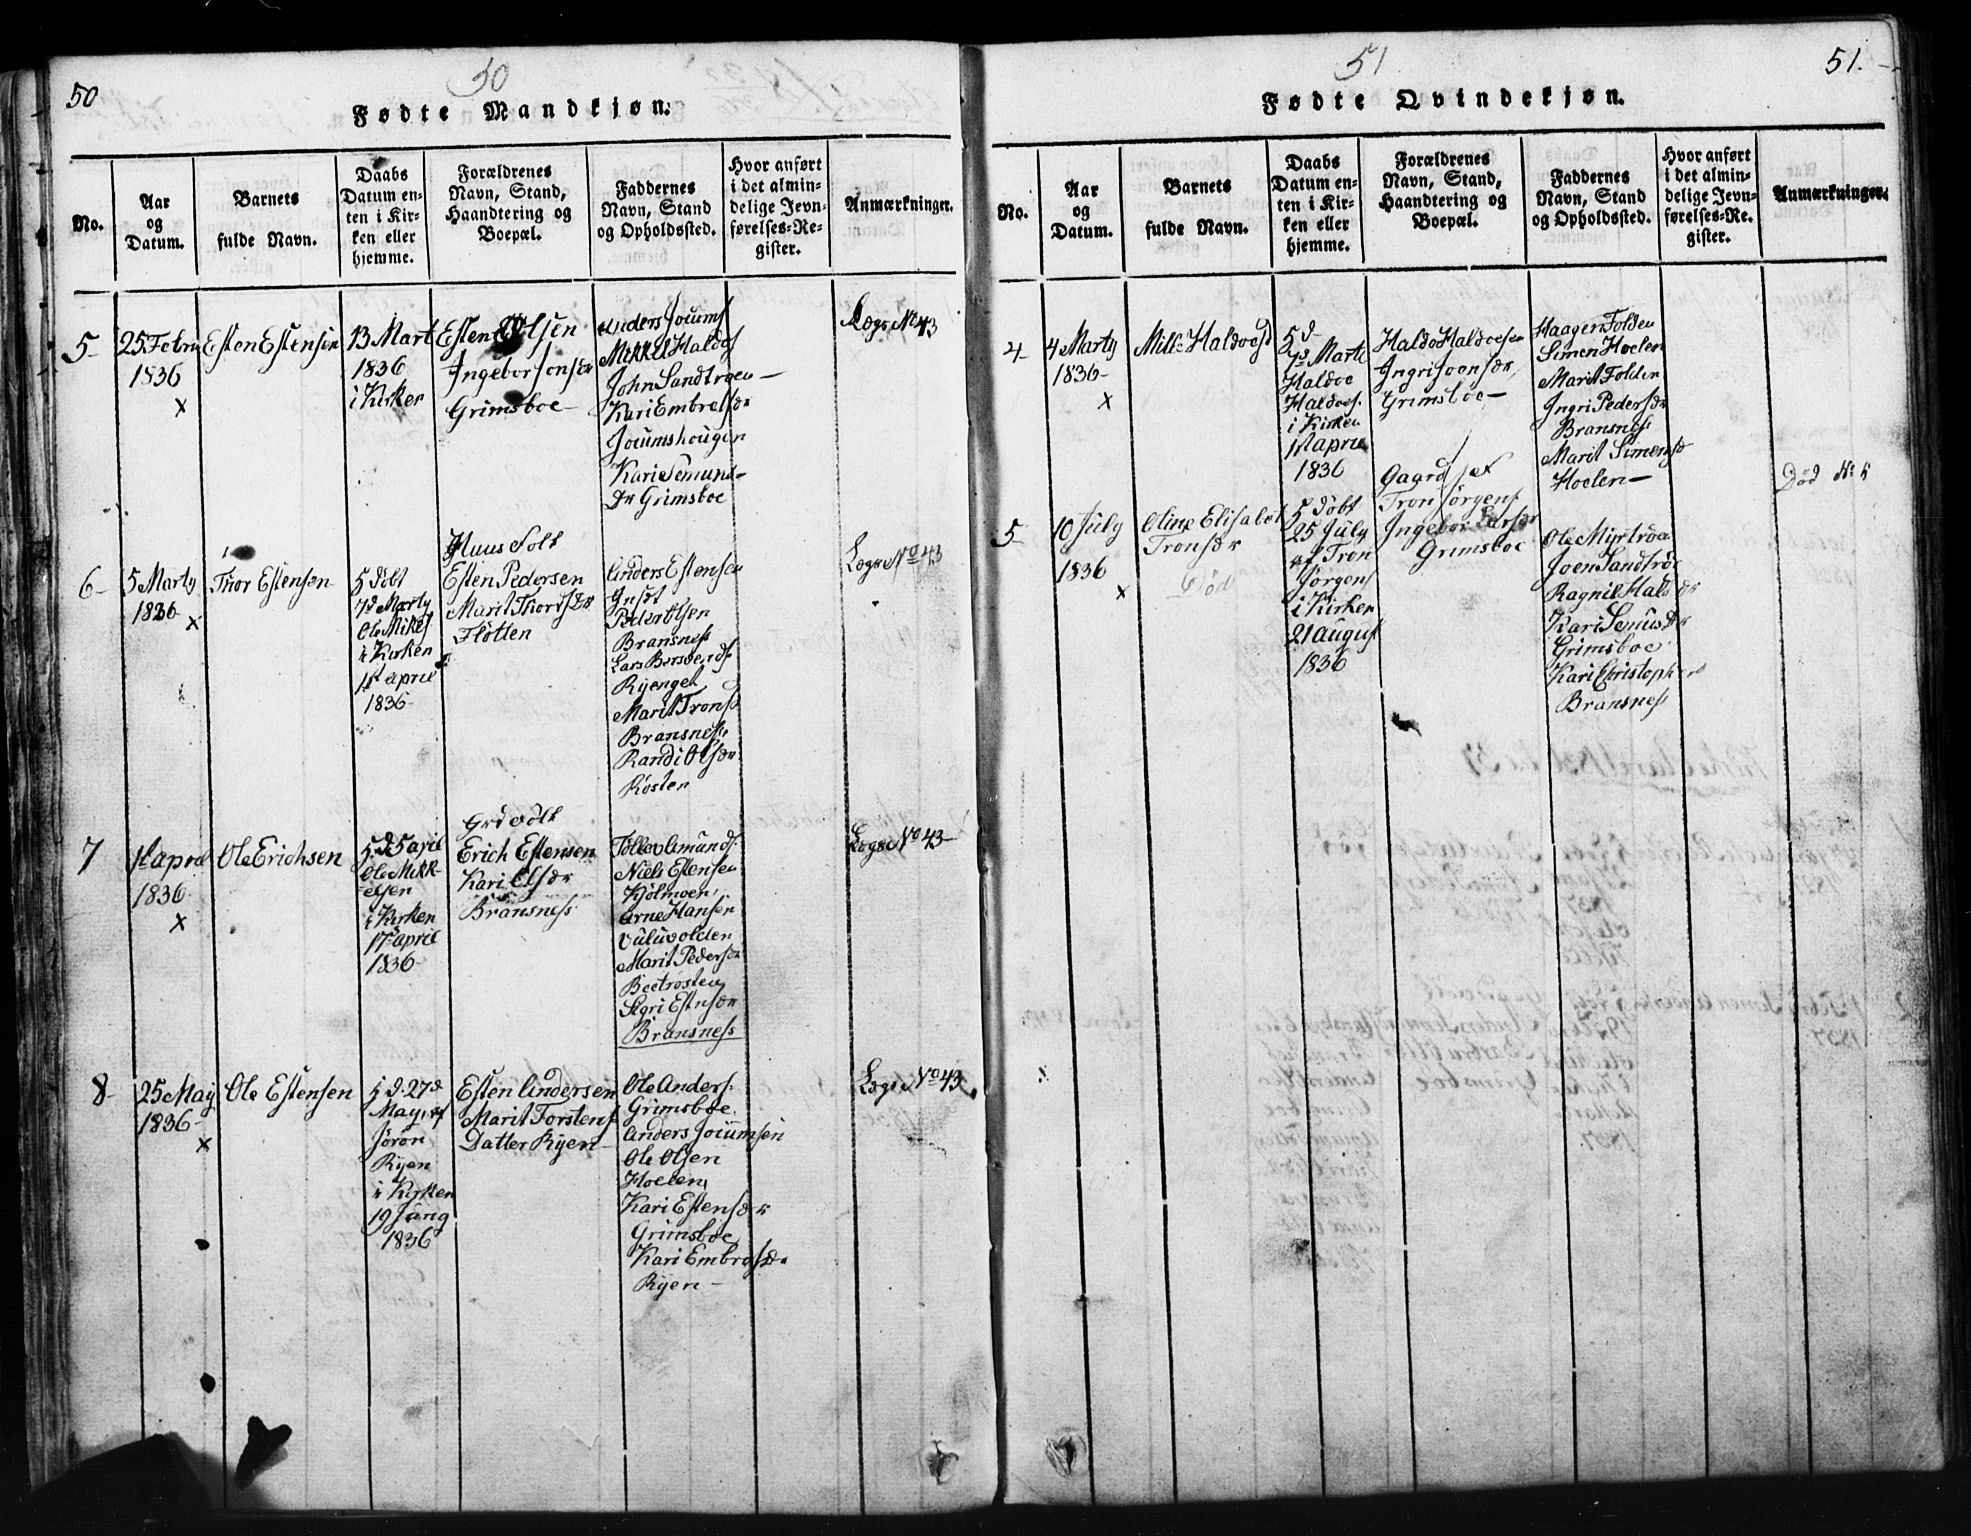 50
50
Fødte Mandkjøn.
No.
Aar
og
Datum.
Barnets
fulde Navn.
Daabs
Datum en-
ten i Kir-
ken eller
hjemme.
Forældrenes
Navn, Stand,
Haandtering og
Boepæl.
Faddernes
Navn, Stand
og Opholdssted.
Hvor anført
i det almin-
delige Jevn-
førelses-Re-
gister.
Anmærkninger.
5
25 Febru
1836
x
Esten Estensen
13 Mart
1836
i Kirken
Esten Olsen
Grimsboe
Anders Joumsf
Mikkel Haldosf
John Sandtrøen
Kari Embretsdr
Joumshougen
Kari Semunds
dr Grimsboe
Lægs No 43
6
5 Marty
1836
x
Thor Estensen
5 døbt
7d Marty
Ole Mikelsf
i Kirken
1st april
1836
Huus Folk
Esten Pedersen
Marit Thordsdr
Fløtten
Anders Estensen
Peder Olsen
Bransness
Ryenget
Marit Tronsdr
Bransness
Randi Olsdr
Røsten
Lægs No 43
7
1st april
1836
x
Ole Erichsen
5 d 5 april
Ole Mikk-
elsen
i Kirken
17d april
1836
Grd Folk
Erich Estensen
Kari Olsdr
Bransness
Tollev Amundsf.
Niels Estensen
Kjølmoen
Arne Hansen
Vuluvolden
Marit Pedersdr
Beetrøsten
Sigri Estensdr
Bransness
Lægs No 43
8
25 May
1836
x
Ole Estensen
5 d. 27d
May, af
Jøron
Ryen
i Kirken
19 Juny
1836
Esten Andersen
Marit Torstens
Datter Ryen
Ole Andersf.
Grimsboe
Anders Joumsen
Ole Olsen
Hoelen
Kari Estensdr
Grimsboe
Kari Embretsdr
Ryen
Lægs No 43
51
51.
Fødte Qvindekjøn.
No.
Aar
og
Datum.
Barnets
fulde Navn.
Daabs
Datum en-
ten i Kir-
ken eller
hjemme.
Forældrenes
Navn, Stand,
Haandtering og
Boepæl.
Faddernes
Navn, Stand
og Opholdssted.
Hvor anført
i det almin-
delige Jevn-
førelses-Re-
gister.
Anmærkninger.
4
4 Marty
1836
x
Haldoesd
5 d
7d Marti
Haldoe
Haldoesf.
i Kirken
1st april
1836
Haldo Haldoesen
Ingri Joensdr
Grimsboe
Haagen Folden
Simen Hoelen
Marit Folden
Ingri Pedersdr
Bransness
Marit Simensdr
Hoelen
5
10 July
1836
x
Oline Elisabet
Tronsdr
Død
5 døbt
25 July
af Tron
Jørgensf
i Kirken
21 August
1836
Tron Jørgensf
Ingebor Larsdr
Grimsboe
Ole Myrtrøen
Joen Sandtrøe
Ragnil Haldodr
Kari Semusdr
Grimsboe
Kari Christophers
Bransness
Død No 5